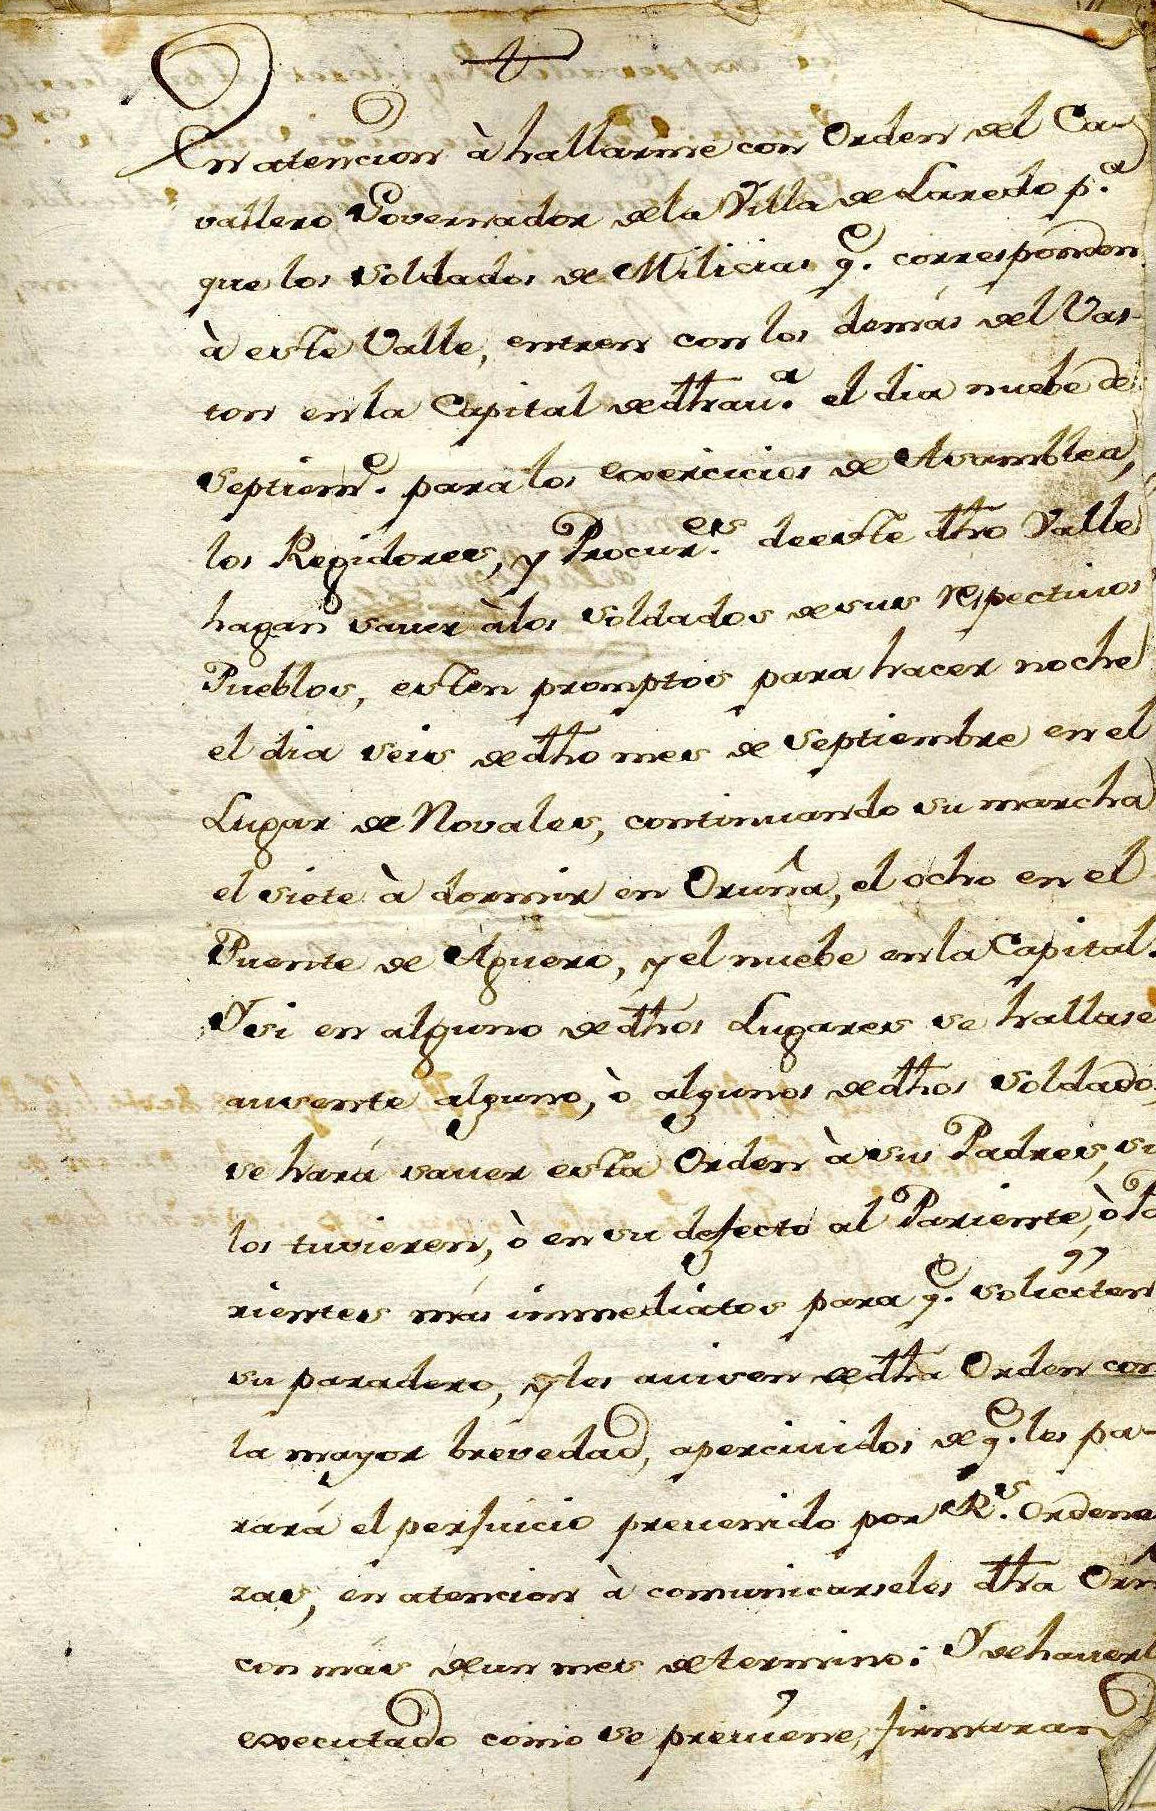 En atencion à hallarme con Orden del Ca-
vallero Governador de la Villa de Laredo p.a
que los Soldados de Milicias q.e corresponden
à este Valle, entren con los demás del Vas-
ton en la Capital de dthau.a el dia nuebe de
Septiem.e para los exercicios de Asamblea,
los Regidores, y Procur.es de este dtho Valle
hagan saver à los Soldados de sus respectivos
Pueblos, esten promptos para hacer noche
el dia seis de dtho mes de Septiembre en el
Lugar de Novales, continuando su marcha
el siete à dormir en Oruña, el ocho en el
Puente de Aguero, y el nuebe en la Capital.
Y si en alguno de dthos Lugares se hallase
ausente alguno, ò algunos de dthos Soldados
se hará saver esta Orden à sus Padres, si
los tuvieren, ò en su defecto al Pariente, ò Pa
rientes más immediatos para q.e soliciten
su paradero, y les avisen de dtha Orden con
la mayor brevedad, apercividos de q.e les pa-
rará el perjuicio prevenido por R.s Ordena
zas, en atencion à comunicarseles dtha Orn
con más de un mes de termino: Y de haverl
executado como se previene, firmaran